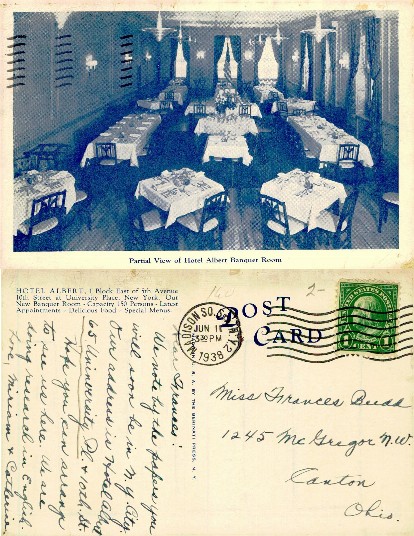 POST
CARD
Partial View of Hotel Albert Banquet Room
HOTEL ALBERT, 1 Block East of 5th Avenue
10th Street at University Place, New York. Our
New Banquet Room - Capacity 150 Persons - Large
Appointments - Delicious Food - Special Menus
MADISON SQ. STA. N.Y.
JUN 11
PM
1938
2
POST
CARD
Dear Frances:
We note by the papers you
will soon be in N.Y. City.
Our address is Hotel Albert
65 University Pl. & 10th St.
Hope you can arrange
to see us here. We are
doing research in English.
Love, Miriam & Catherine
Miss Frances Budd
1245 McGregor N.W.
Canton
Ohio.